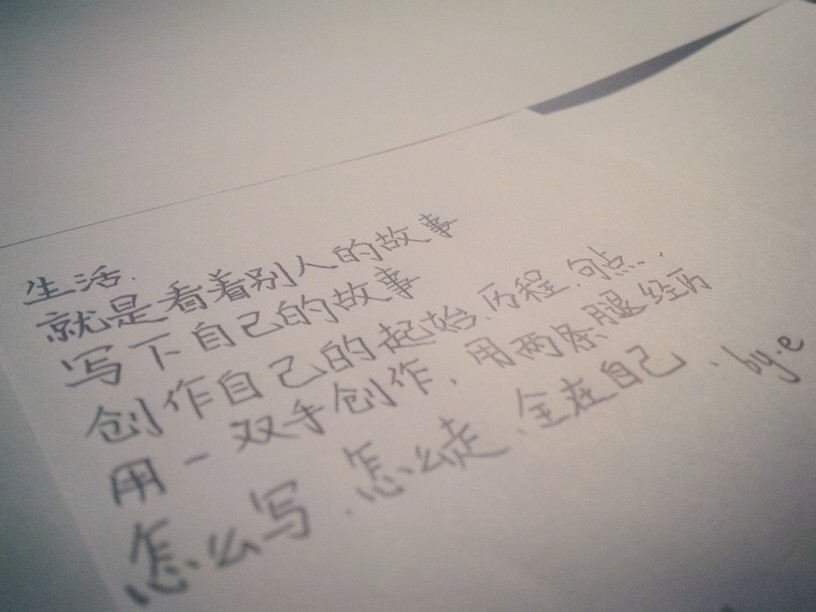 生活.
就是看着别人的故事
写下自己的故事
创作自己的起始、历程、句点...
用一双手创作.用两条腿经历
怎么写.怎么走、全在自己.by.e